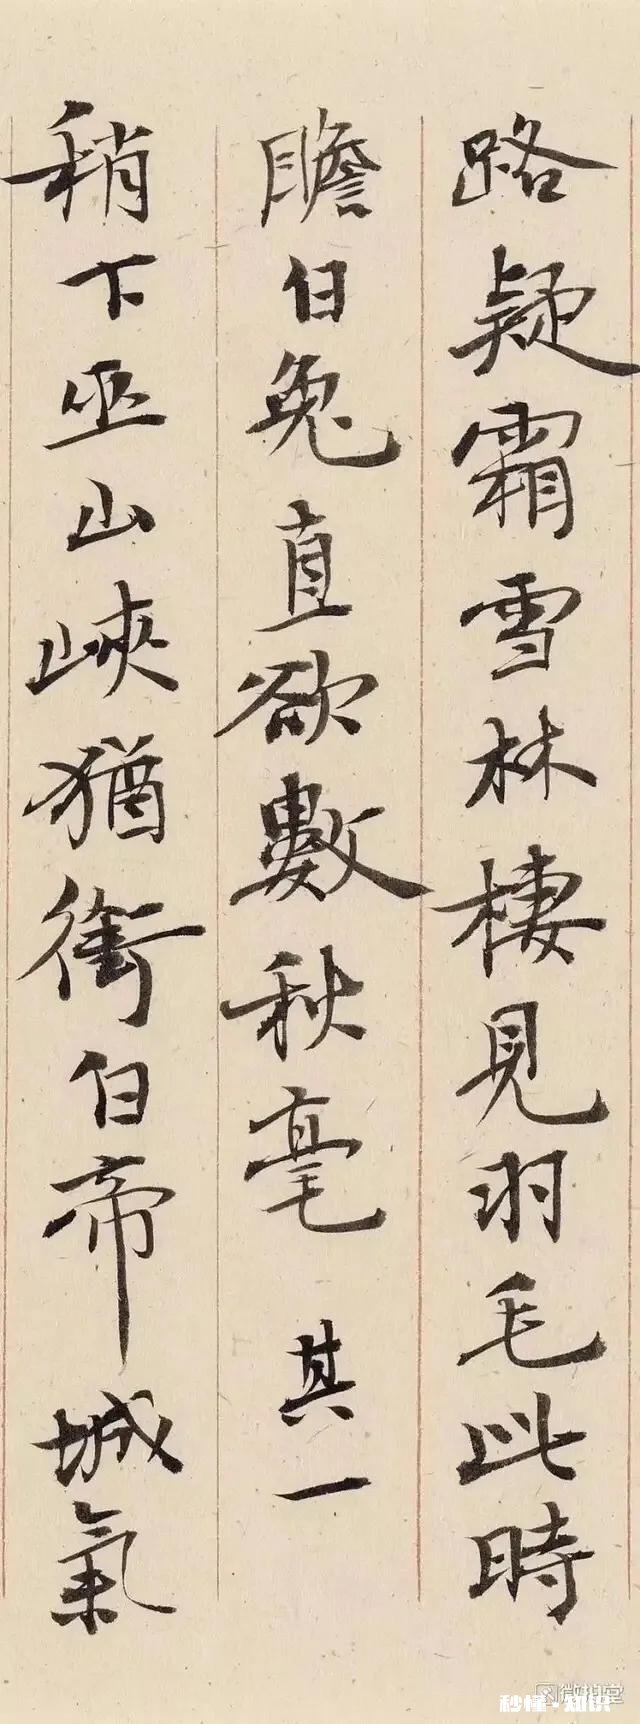 路疑霜雪林棲見羽毛此時
瞻白兔直欲數秋毫 其一
稍下巫山峽猶銜白帝城氣
秒懂·知识